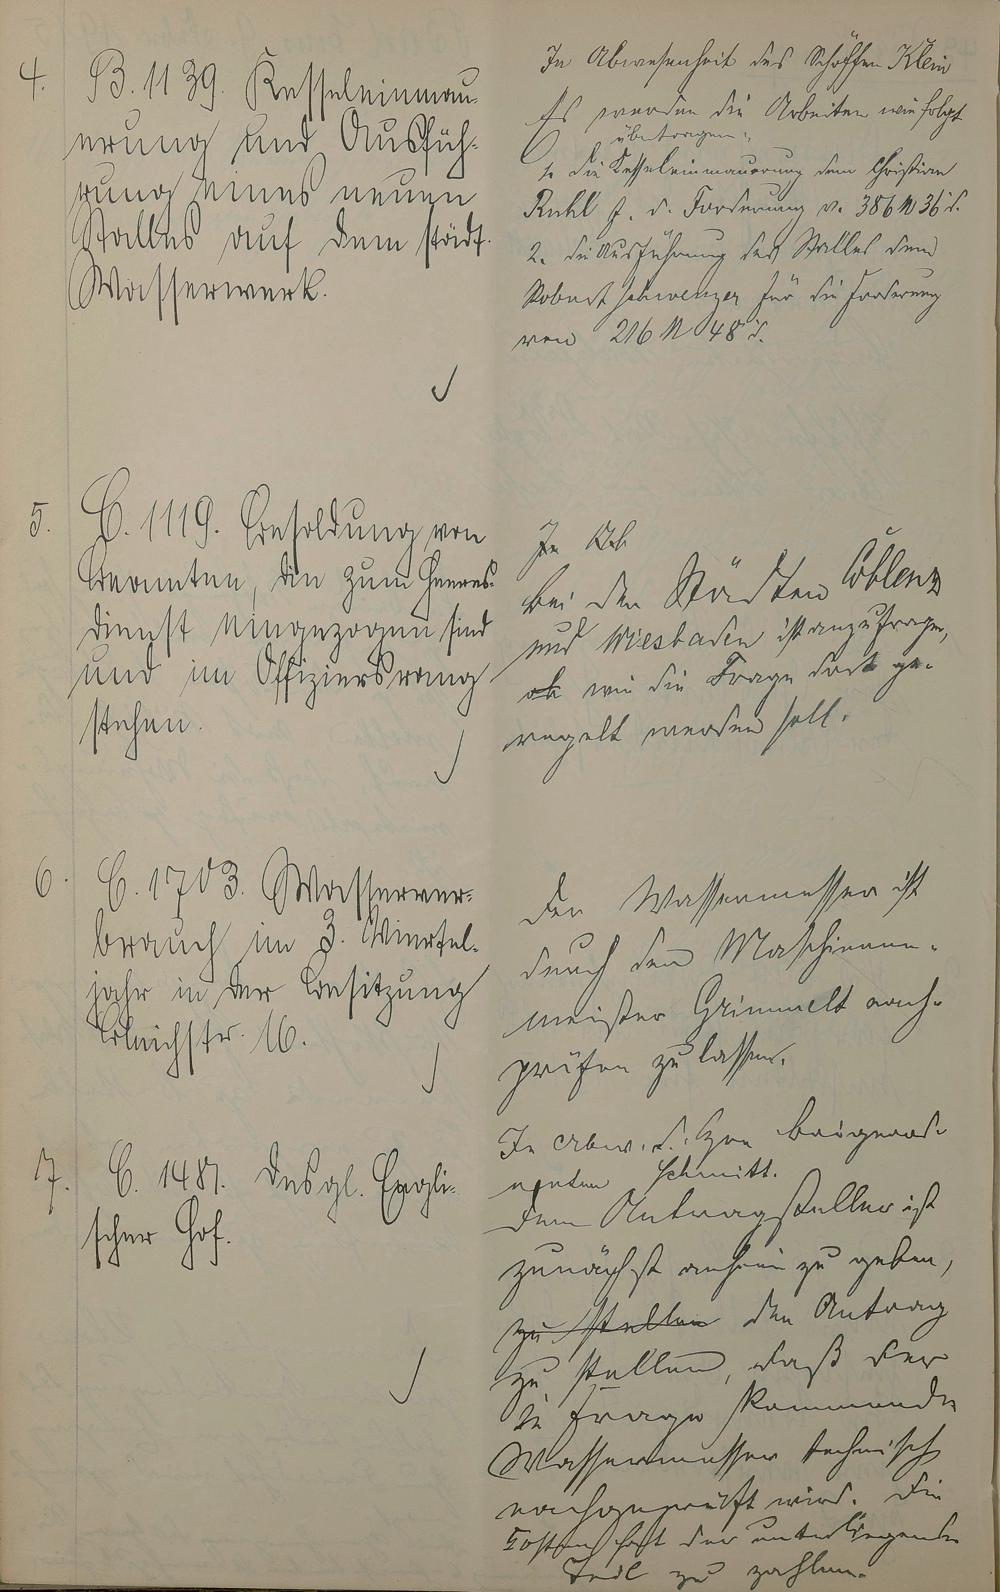 4. B. 1139. Kesseleinmau-
erung und Ausfüh-
rung eines neuen
Stalles auf dem städt.
Wasserwerk.
In Abwesenheit des Schöffen Klein
Es werden die Arbeiten wie folgt
übertragen:
1. die Kesseleinmauerung dem Christian
Ruhl f. d. Forderung v. 386 M 36 d.
2. die Ausführung des Stalles dem
Robert Schwenzer für die Forderung
von 216 M 48 d.
5. C. 1119. Besoldung von
Beamten, die zum Heeres-
dienst eingezogen sind
und im Offiziersrang
stehen.
In Ab
bei den Städten Coblenz
und Wiesbaden ist anzufragen,
ob wie die Frage dort ge-
regelt werden soll.
6. C. 1703. Wasserver-
brauch im 3. Viertel-
jahr in der Besitzung
Bleichstr. 16.
Der Wassermesser ist
durch den Maschinen-
meister Grimmelt nach-
prüfen zu lassen.
7. C. 1487. Desgl. Engli-
scher Hof.
In Abw. d. Hrn Beigeord-
neten Schmitt.
Dem Antragsteller ist
zunächst anheim zu geben,
zu stellen den Antrag
zu stellen, daß der
in Frage kommende
Wassermesser technisch
nachgeprüft wird. Die
Kosten hat der unterliegende
Teil zu zahlen.